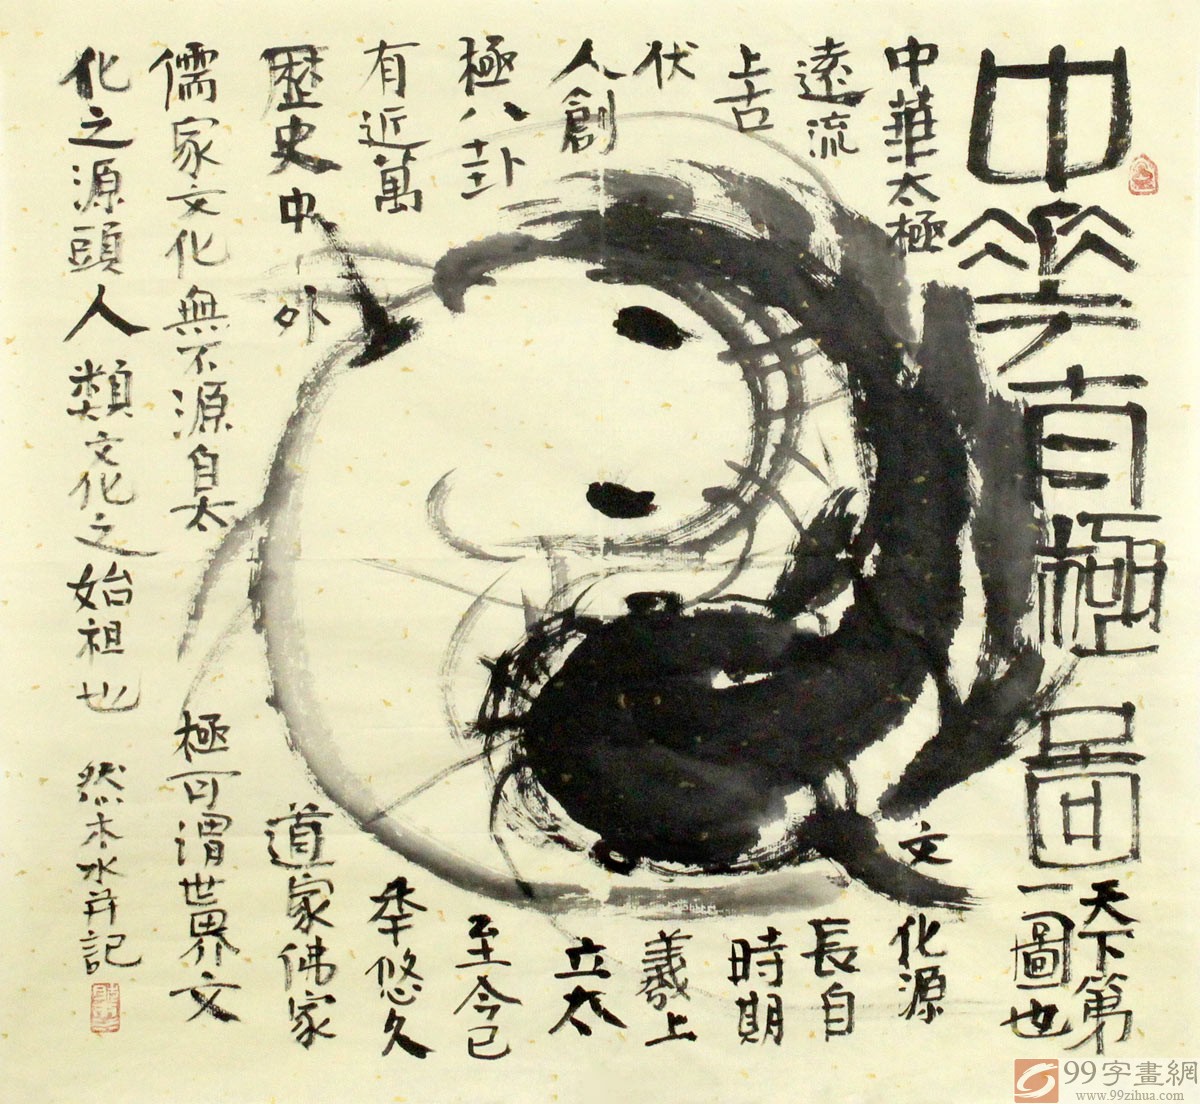 中華極圖
天下第
一圖也
中華太極文化源
遠流長自
上古時期
伏羲上
人創立太
極八卦至今已
有近萬年悠久
歷史中外道家佛家
儒家文化無不源自太極可謂世界文
化之源頭人類文化之始祖也 然本水并記
99字畫網
www.99zihua.com